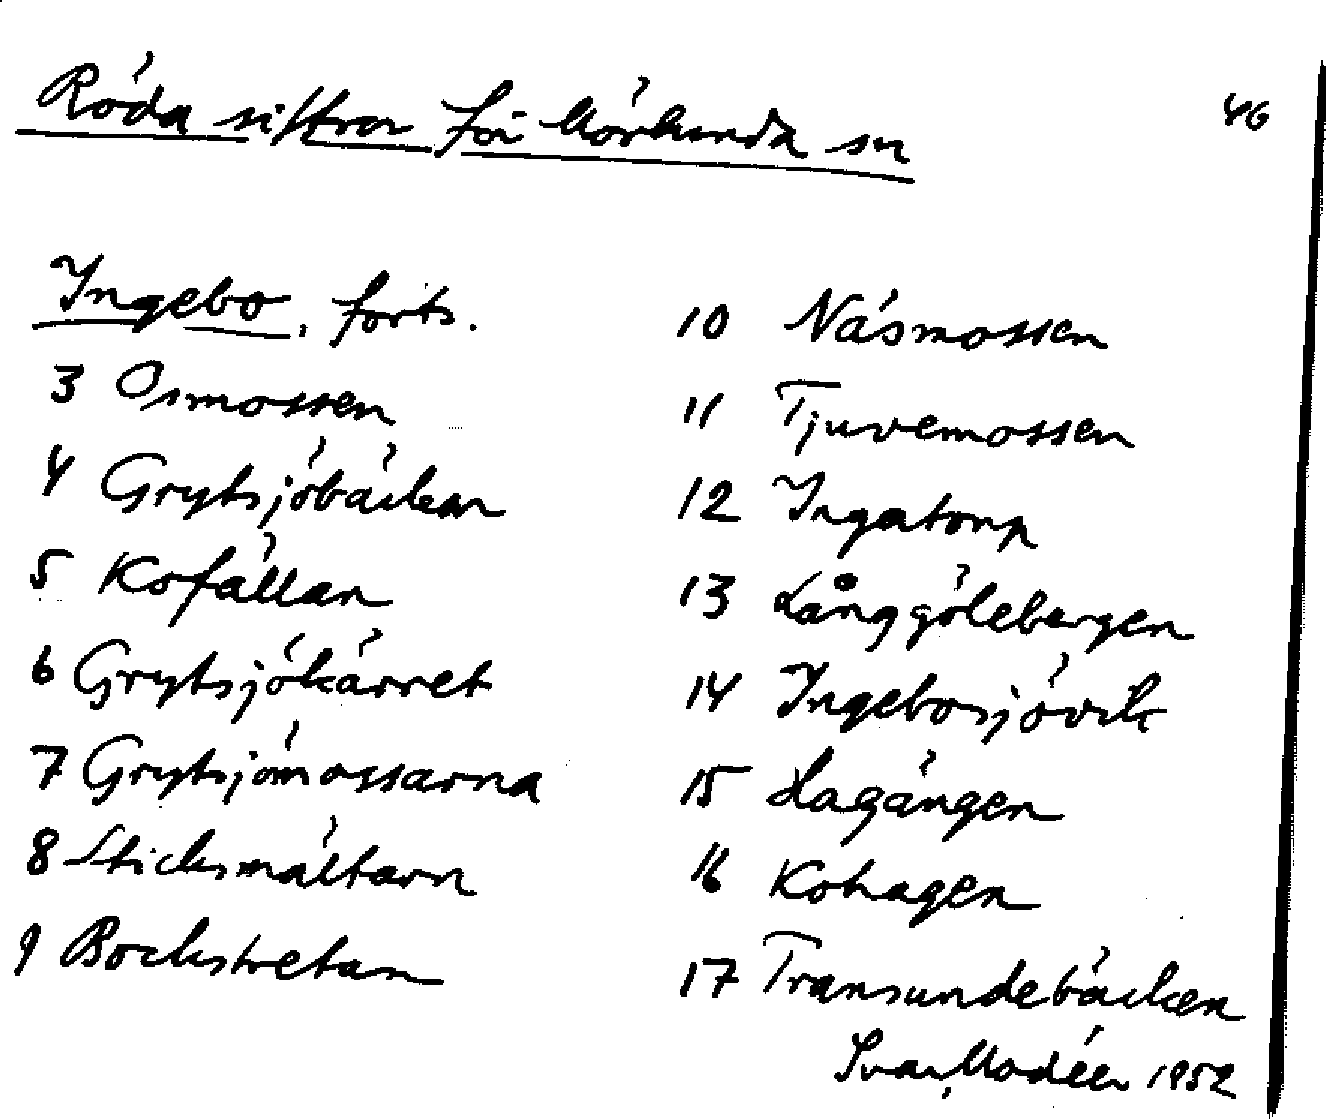 Röda siffror för Mörlunda sn
46
Ingebo, forts.
3 Osmossen
4 Grytsjöbäcken
5 Kofällan
6 Grytsjökärret
7 Grytsjömossarna
8 Sticksmåltarn
9 Bockstretan
10 Näsmossen
11 Tjuvemossen
12 Ingatorp
13 Långgölebergen
14 Ingebosjövik
15 Lagången
16 Kohagen
17 Transundebäcken
Ivar Modéer 1952